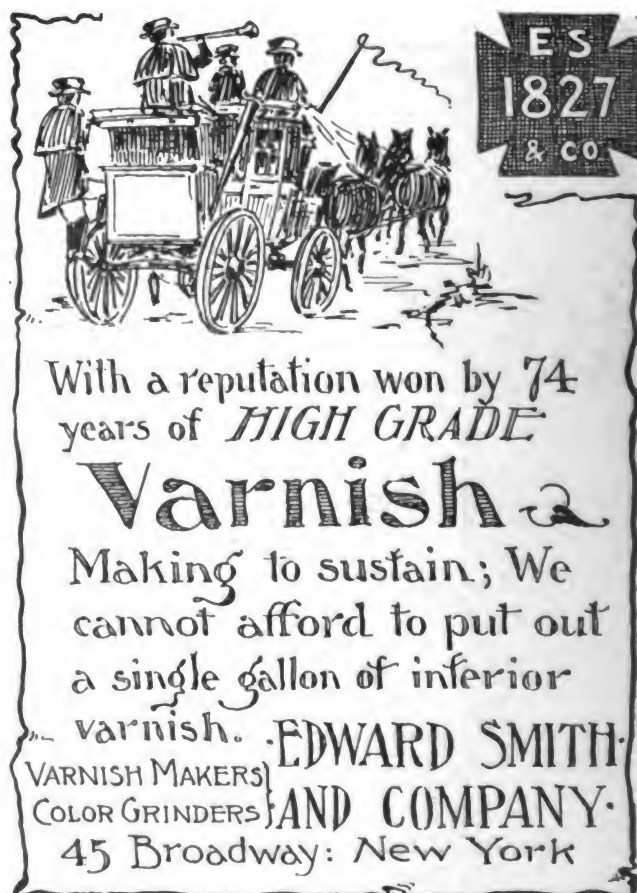 E S
1827
& CO
With a reputation won by 74
years of HIGH GRADE
Varnish
Making to sustain; We
cannot afford to put out
a single gallon of inferior
varnish.
EDWARD SMITH
VARNISH MAKERS
COLOR GRINDERS
AND COMPANY.
45 Broadway: New York